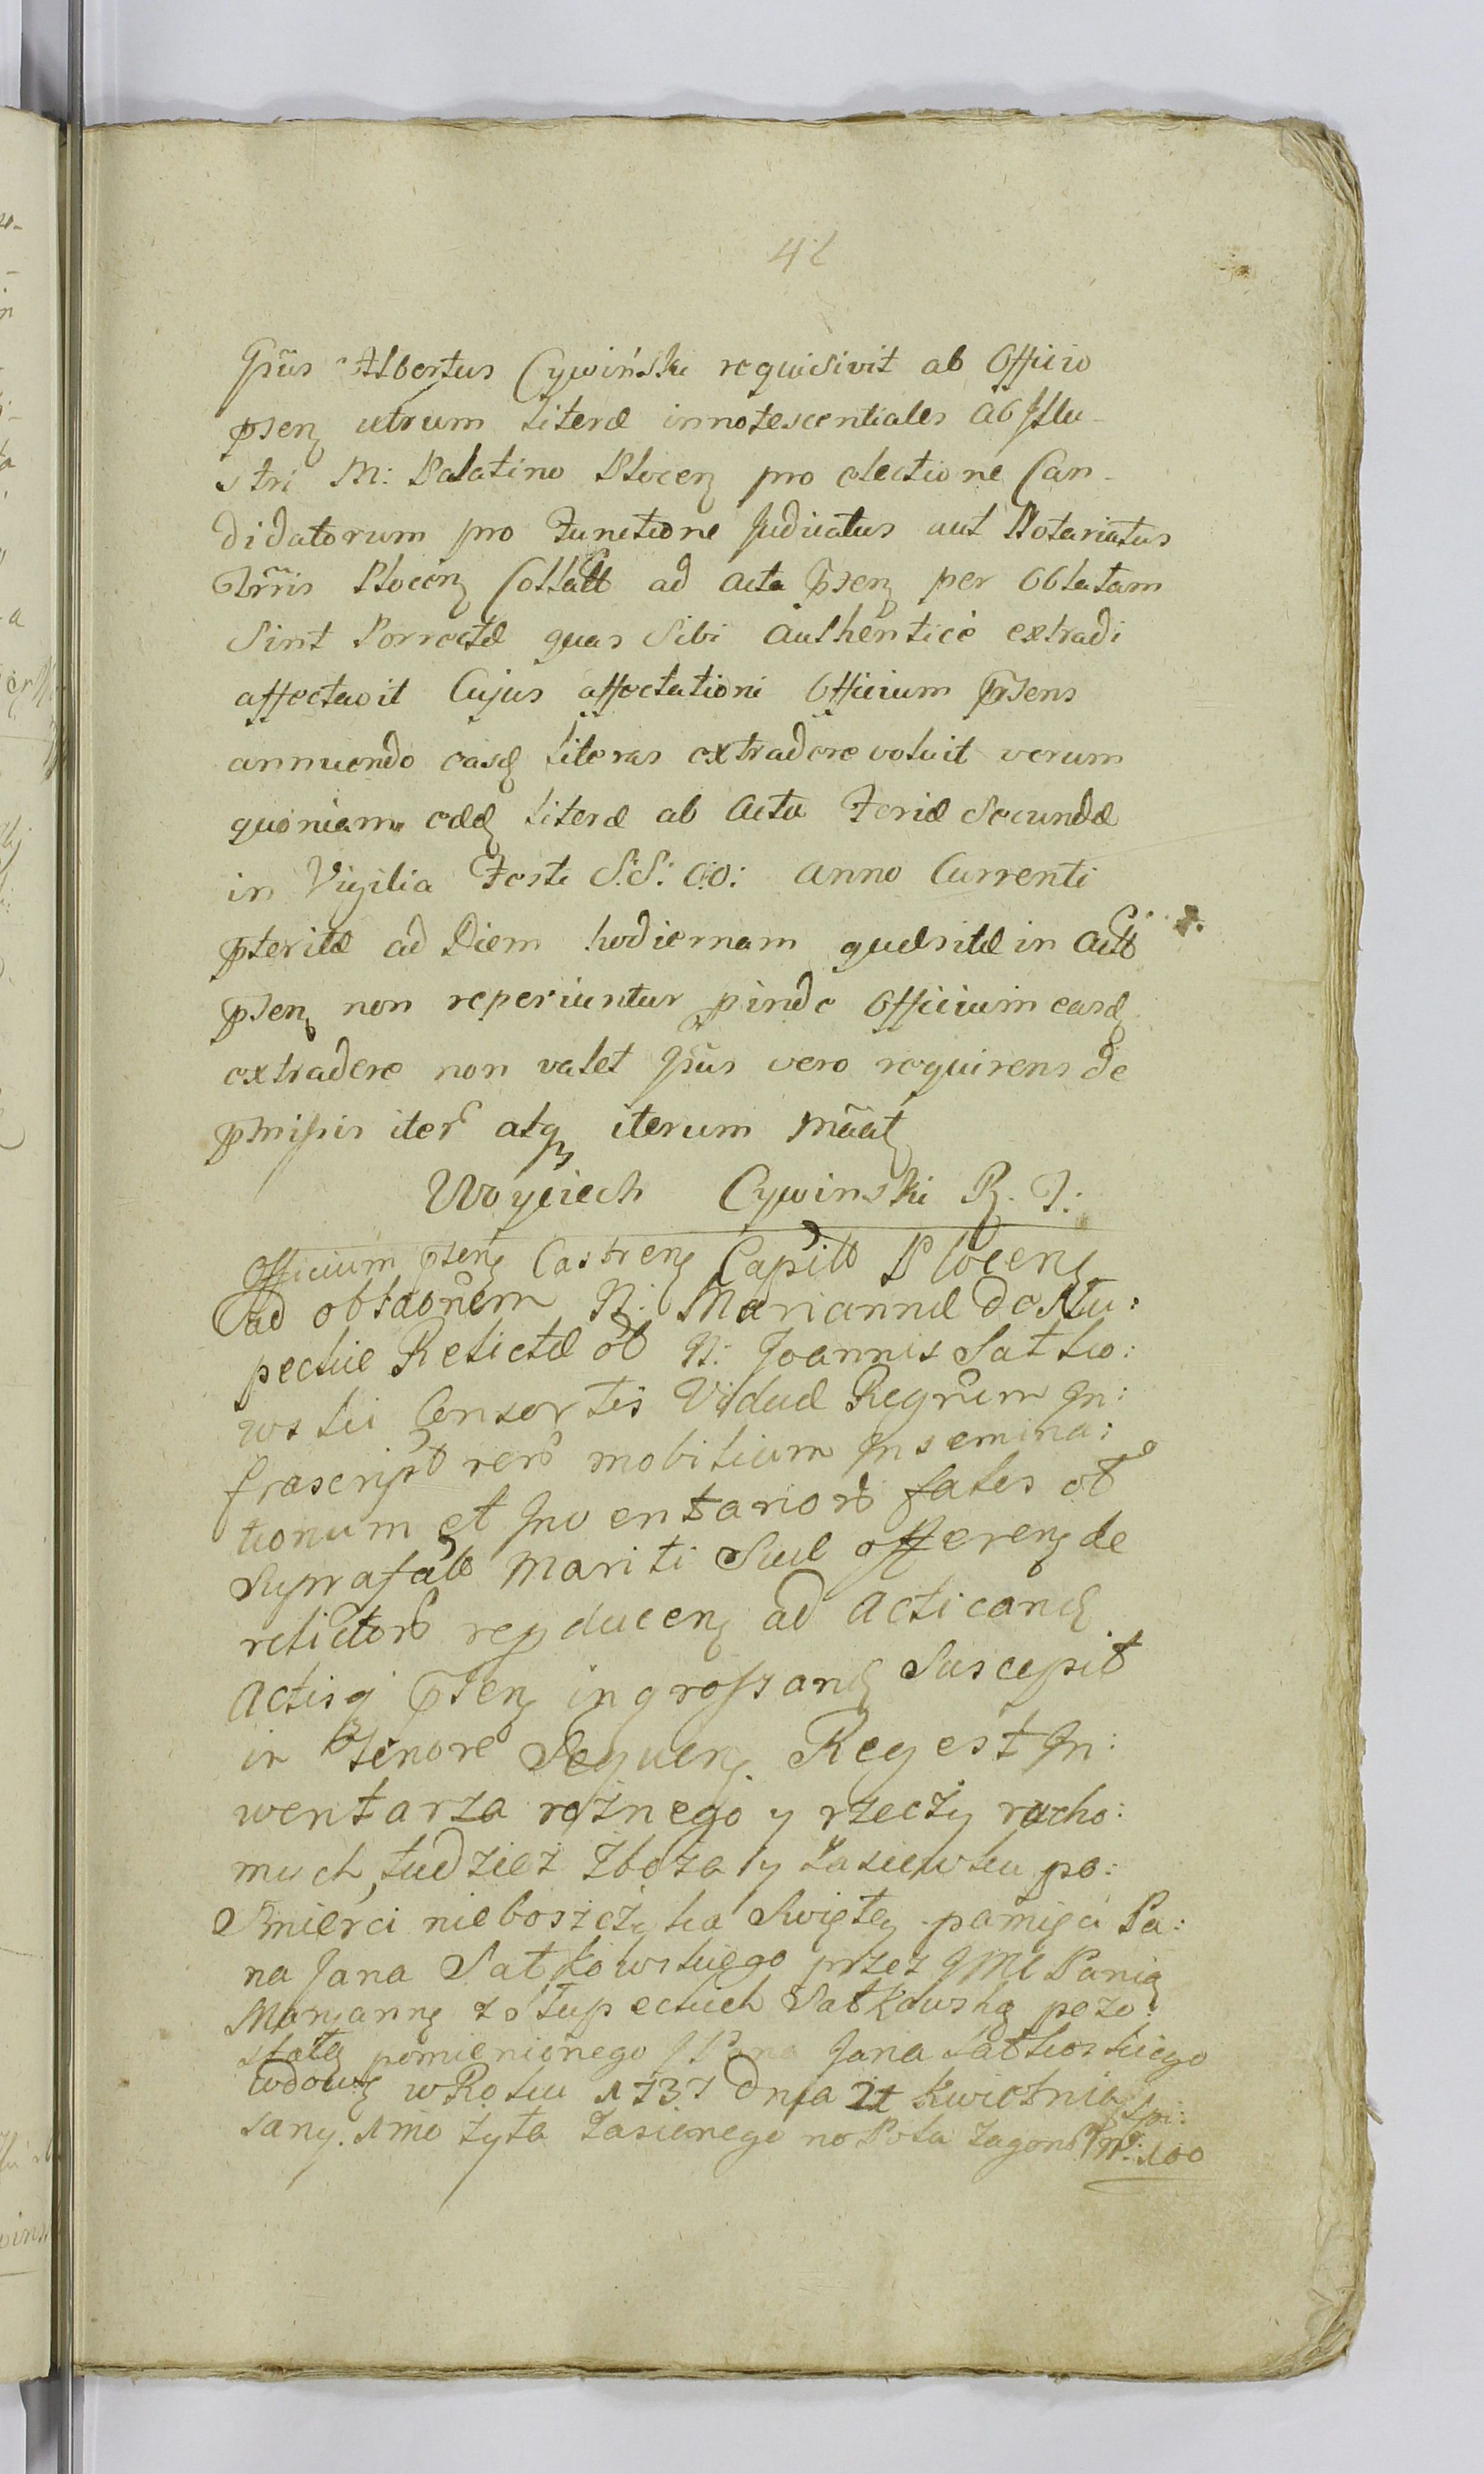 42
Gn̄sus Albertus Cywiński requisivit ab Officio
pn̄señ utrum literæ innotescentiales ab Illu-
stri M: Palatino Ploceñ pro electione Can-
didatorum pro Functione Judicatus aut Notariatus
Trr̄is Ploceñ Collatt ad acta pn̄señ per Oblatam
Sint Porrectæ quas Sibi Authenticè extradi
affectavit Cujus affectationi Officium pn̄sens
annuendo easd Literas extradere voluit verum
quoniam eæd Literæ ab Actu Feriæ Secundæ
in Vigilia Festi S.S. O.O: Anno Currenti
pteritæ ad Diem hodiernam quæsitæ in Actt
pn̄señ non reperiuntur pinde Officium easd
extradere non valet Gn̄sus vero requirens de
pmissis iter atq iterum māat
Woyciech Cywinski R. T:
Officium pn̄señ Castreñ Capit Ploceñ
ad oblaōnem N: Mariannæ de Stu:
peckie Relictæ ol N: Joannis Satko:
wski Consortis Viduæ Regr̄um In:
frascript rer mobilium Insemina:
tionum et Inventarior fates ol
Suprafatt Mariti Sui offereñ de
relictor rep duceñ ad acticand
Actisq pn̄señ ingrossand Suscepit
in Tenore Sequeñ. Regest In:
wentarza rożnego y rzeczy rucho:
mych, tudzież Zboża y Zasiewku po:
Smierci nieboszczyka Swiętey pamięci Pa:
na Jana Satkowskiego przez JMC Panią
Maryannę z Stupeckich Satkowską pozo:
stałą pomienionego JPana Jana Satkoskiego
wdowę w Roku 1737 Dnia 21 Kwietnia Spi:
sany. 1mo żyta Zasianego no Pola Zagon Nr: 100